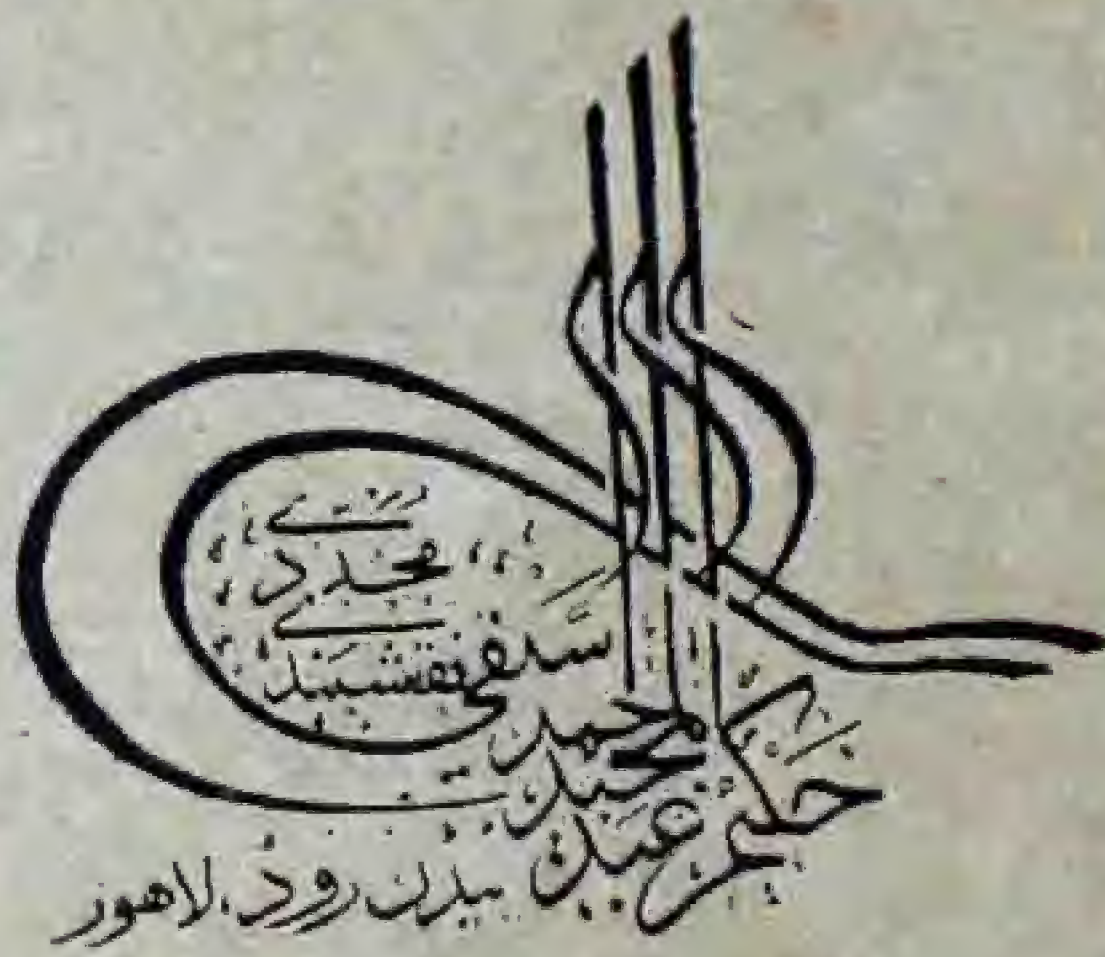 حکیم عبد المجید احمد سیفی نقشبندی مجددی
بیڈن روڈ، لاهور